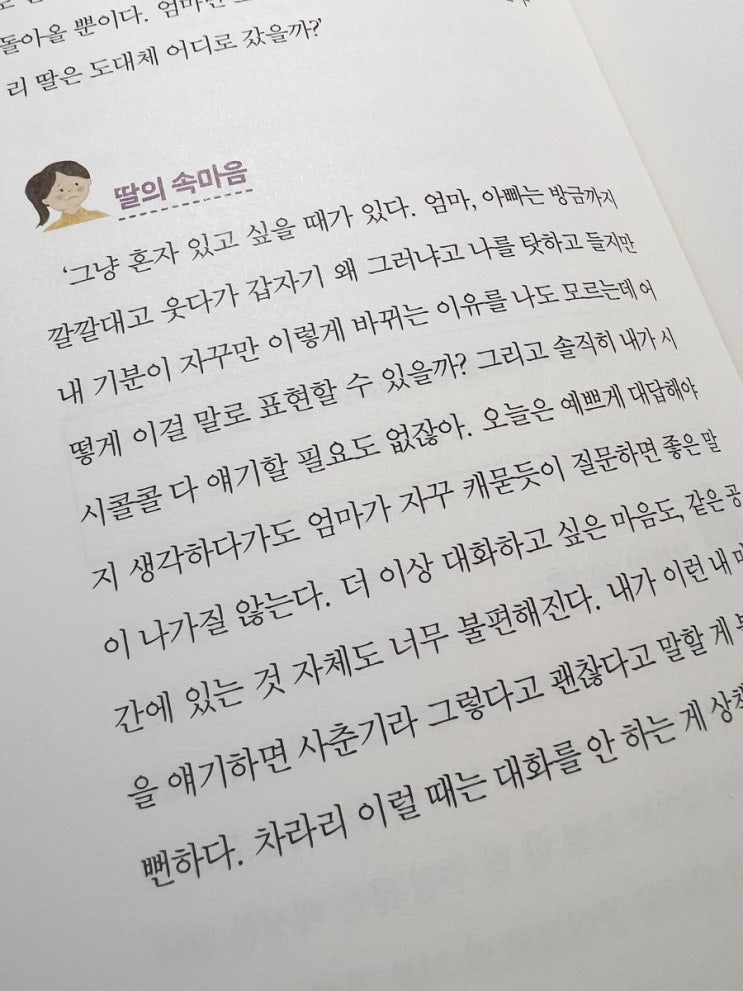 돌아올 뿐이다.
리 딸은 도대체 어디로 갔을까?'
딸의 속마음
'그냥 혼자 있고 싶을 때가 있다. 엄마, 아빠는 방금까지
깔깔대고 웃다가 갑자기 왜 그러냐고 나를 탓하고 들지만
내 기분이 자꾸만 이렇게 바뀌는 이유를 나도 모르는데 어
떻게 이걸 말로 표현할 수 있을까? 그리고 솔직히 내가 시
시콜콜 다 얘기할 필요도 없잖아. 오늘은 예쁘게 대답해야
지 생각하다가도 엄마가 자꾸 캐묻듯이 질문하면 좋은 말
이 나가질 않는다. 더 이상 대화하고 싶은 마음도, 같은 공
간에 있는 것 자체도 너무 불편해진다. 내가 이런 내
을 얘기하면 사춘기라 그렇다고 괜찮다고 말할 게
뻔하다. 차라리 이럴 때는 대화를 안 하는 게